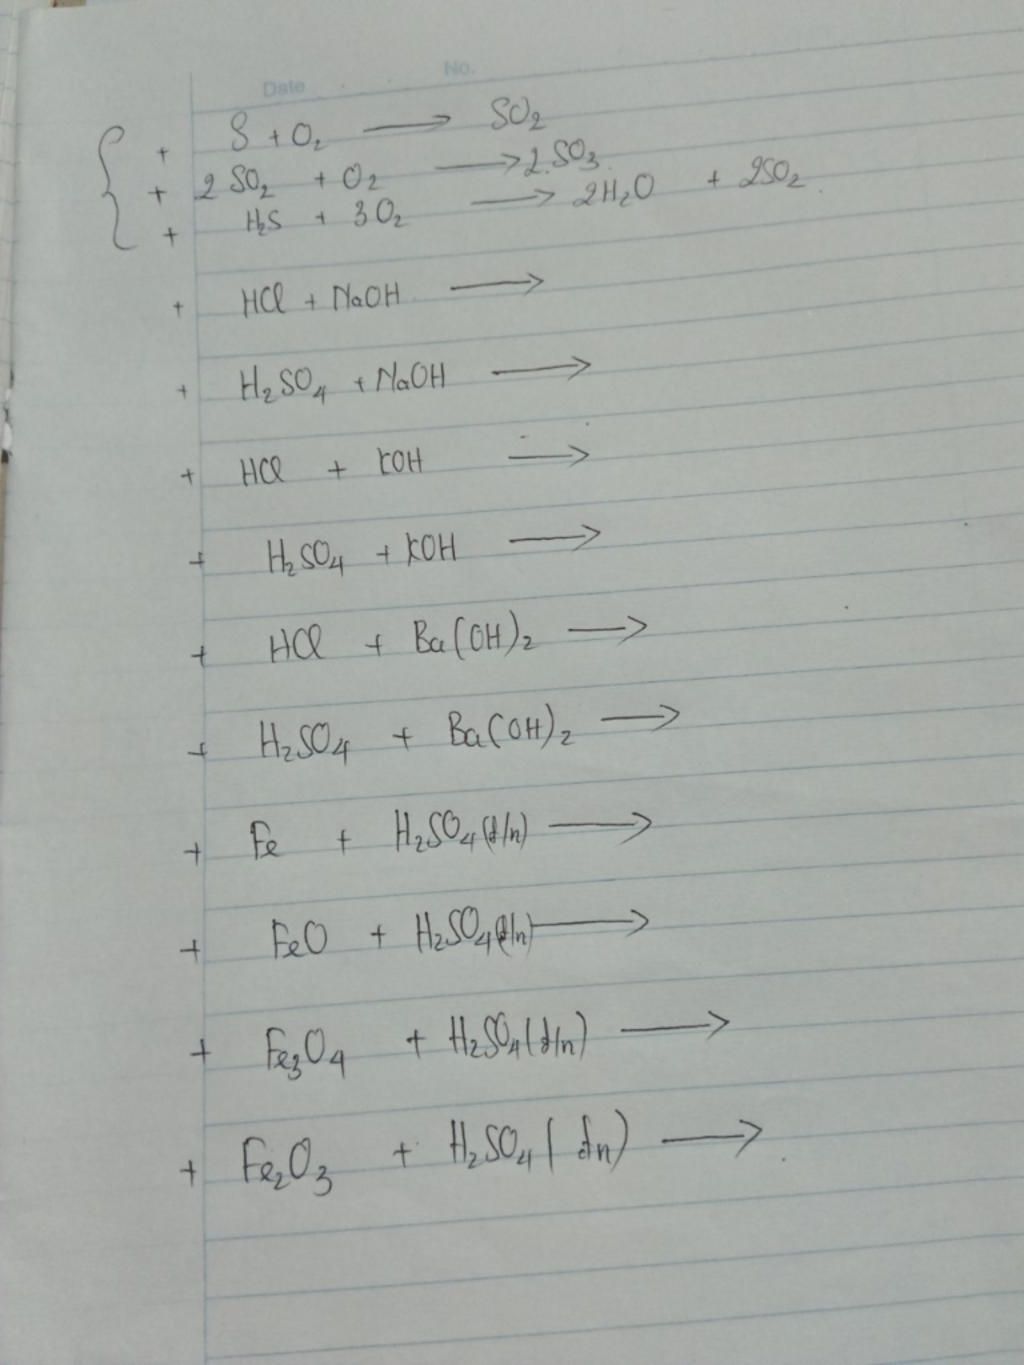 Date No.
+ S + O₂ ⟶ SO₂
+ 2 SO₂ + O₂ ⟶ 2.SO₃.
+ H₂S + 3O₂ ⟶ 2H₂O + 2SO₂.
+ HCl + NaOH ⟶
+ H₂SO₄ + NaOH ⟶
+ HCl + KOH ⟶
+ H₂SO₄ + KOH ⟶
+ HCl + Ba(OH)₂ ⟶
+ H₂SO₄ + Ba(OH)₂ ⟶
+ Fe + H₂SO₄(đ/n) ⟶
+ FeO + H₂SO₄(đ/n) ⟶
+ Fe₃O₄ + H₂SO₄(đ/n) ⟶
+ Fe₂O₃ + H₂SO₄(đn) ⟶